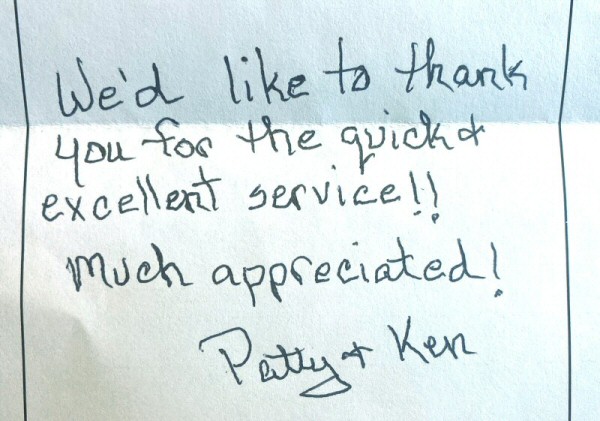 We'd like to thank
you for the quick &
excellent service!!
Much appreciated!
Patty + Ken